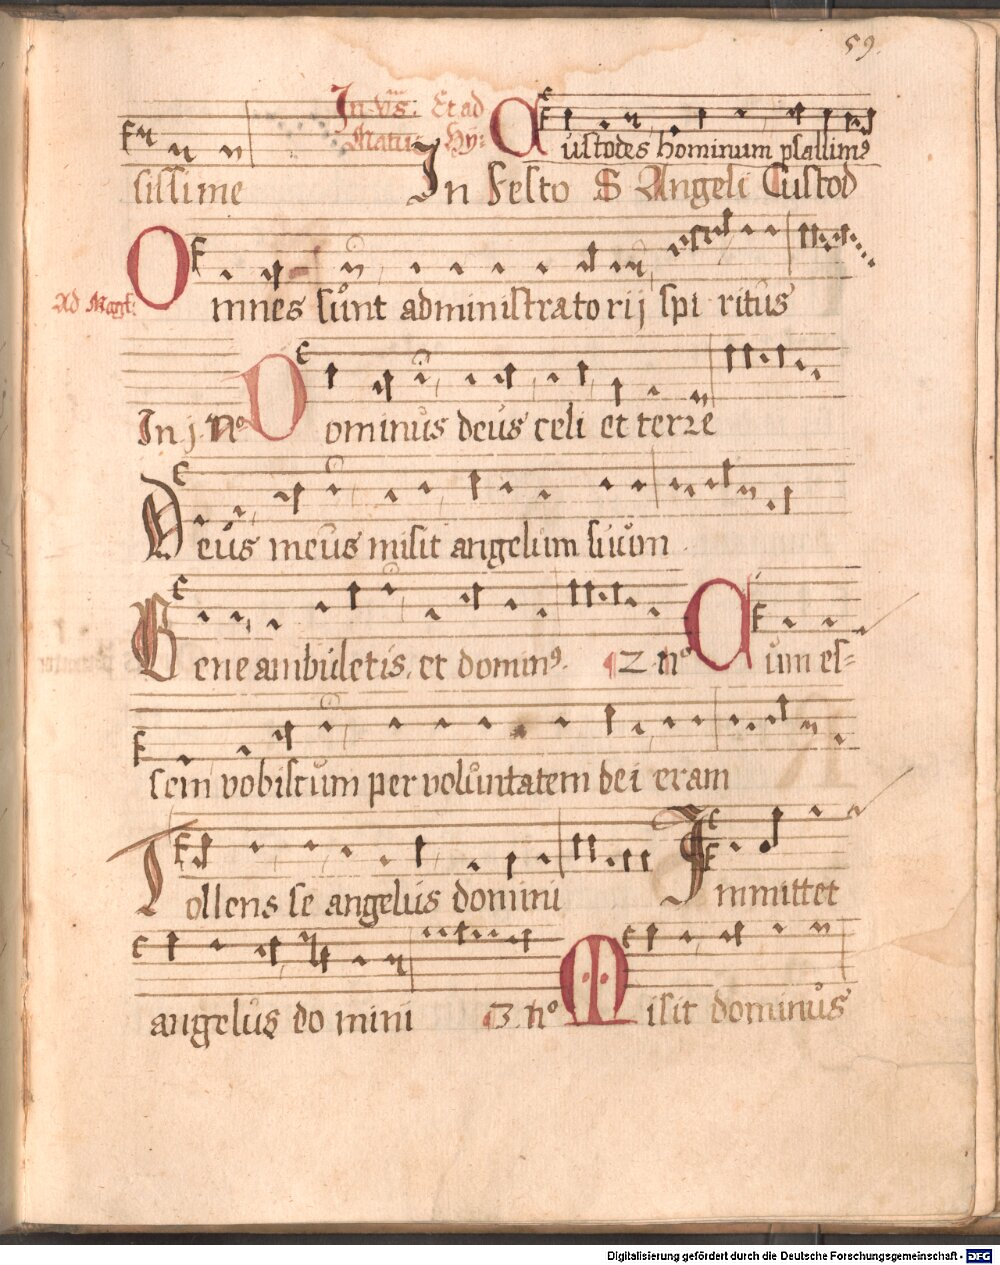 59.
In Vs̄: Et ad
Matut: Hÿ:
Custodes hominum psallimꝰ
sissime In Festo S Angeli Custod
Ad Magt:
Omnes sunt administratorij spiritus
In j. Nº Dominus deus celi et terre
Deus meus misit angelum suum
Bene ambuletis. et dominꝰ. 2 nº Cum es=
sem vobiscum per voluntatem dei eram
Tollens se angelus domini Immittet
angelus domini 3. nº Misit dominus
Digitalisierung gefördert durch die Deutsche Forschungsgemeinschaft - DFG